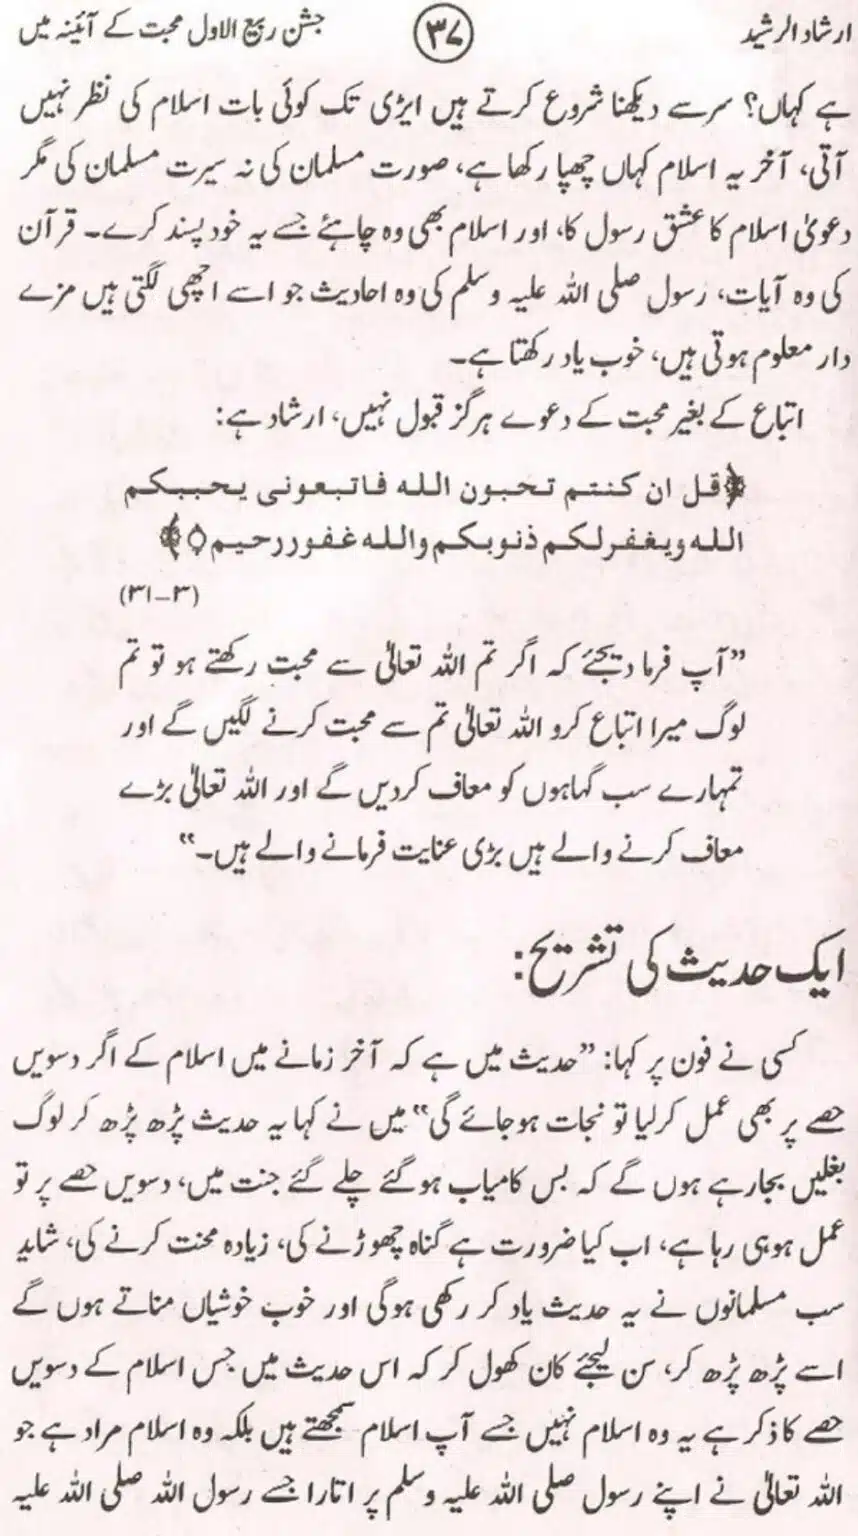 ارشاد الرشید ۳۷ جشن ربیع الاول محبت کے آئینہ میں
ہے کہاں؟ سر سے دیکھنا شروع کرتے ہیں ایڑی تک کوئی بات اسلام کی نظر نہیں
آتی، آخر یہ اسلام کہاں چھپا رکھا ہے، صورت مسلمان کی نہ سیرت مسلمان کی مگر
دعویٰ اسلام کا عشق رسول کا، اور اسلام بھی وہ چاہئے جسے یہ خود پسند کرے۔ قرآن
کی وہ آیات، رسول صلی اللہ علیہ وسلم کی وہ احادیث جو اسے اچھی لگتی ہیں مزے
دار معلوم ہوتی ہیں، خوب یاد رکھتا ہے۔
اتباع کے بغیر محبت کے دعوے ہرگز قبول نہیں، ارشاد ہے:
﴿قل ان كنتم تحبون الله فاتبعونى يحببكم
الله ويغفرلكم ذنوبكم والله غفور رحيم ٥﴾
(۳–۳۱)
”آپ فرما دیجئے کہ اگر تم اللہ تعالیٰ سے محبت رکھتے ہو تو تم
لوگ میرا اتباع کرو اللہ تعالیٰ تم سے محبت کرنے لگیں گے اور
تمہارے سب گہاہوں کو معاف کردیں گے اور اللہ تعالیٰ بڑے
معاف کرنے والے ہیں بڑی عنایت فرمانے والے ہیں۔“
ایک حدیث کی تشریح:
کسی نے فون پر کہا: ”حدیث میں ہے کہ آخر زمانے میں اسلام کے اگر دسویں
حصے پر بھی عمل کرلیا تو نجات ہوجائے گی“ میں نے کہا یہ حدیث پڑھ پڑھ کر لوگ
بغلیں بجارہے ہوں گے کہ بس کامیاب ہوگئے چلے گئے جنت میں، دسویں حصے پر تو
عمل ہو ہی رہا ہے، اب کیا ضرورت ہے گناہ چھوڑنے کی، زیادہ محنت کرنے کی، شاید
سب مسلمانوں نے یہ حدیث یاد کر رکھی ہوگی اور خوب خوشیاں مناتے ہوں گے
اسے پڑھ پڑھ کر، سن لیجئے کان کھول کر کہ اس حدیث میں جس اسلام کے دسویں
حصے کا ذکر ہے یہ وہ اسلام نہیں جسے آپ اسلام سمجھتے ہیں بلکہ وہ اسلام مراد ہے جو
اللہ تعالیٰ نے اپنے رسول صلی اللہ علیہ وسلم پر اتارا جسے رسول اللہ صلی اللہ علیہ